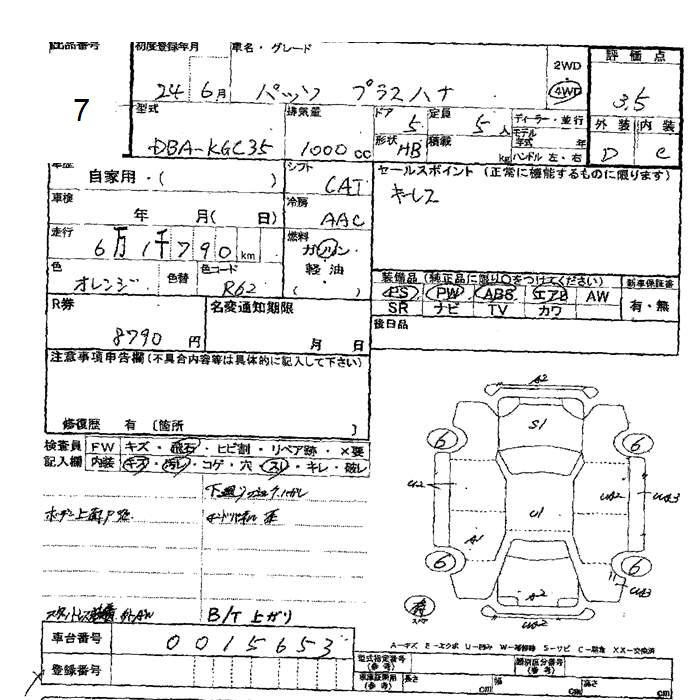 出品番号
7
初度登録年月
24 6月
車名・グレード
パッソ プラスハナ
2WD
4WD
評価点
3.5
外装 内装
D C
型式
DBA-KGC35
排気量
1000 cc
ドア 5
定員 5 人
形状 HB
積載 kg
ディーラー・並行
モデル年式 年
ハンドル 左・右
車歴
自家用・( )
シフト
CAT
セールスポイント (正常に機能するものに限ります)
キーレス
車検
年 月( 日)
冷房
AAC
走行
6万1千790 km
燃料
ガソリン
軽油
( )
色
オレンジ
色替
色コード
R62
装備品 (純正品に限り○をつけてください)
PS PW ABS エアB AW
SR ナビ TV カワ
新車保証書
有・無
後日品
R券
8790 円
名変通知期限
月 日
注意事項申告欄(不具合内容等は具体的に記入して下さい)
修復歴 有 〔箇所 〕
検査員記入欄
FW キズ・飛石・ヒビ割・リペア跡・×要
内装 キズ・汚レ・コゲ・穴・スレ・キレ・破レ
B/T 上がり
A2
S1
6
6
U2
U1
A1
UA2
UA3
6
6
A2
UA3
UA2
車台番号
0015653
登録番号
A-キズ E-エクボ U-凹み W-補修跡 S-サビ C-腐食 XX-交換済
型式指定番号
(参考)
類別区分番号
(参考)
長さ cm
幅 cm
高さ cm